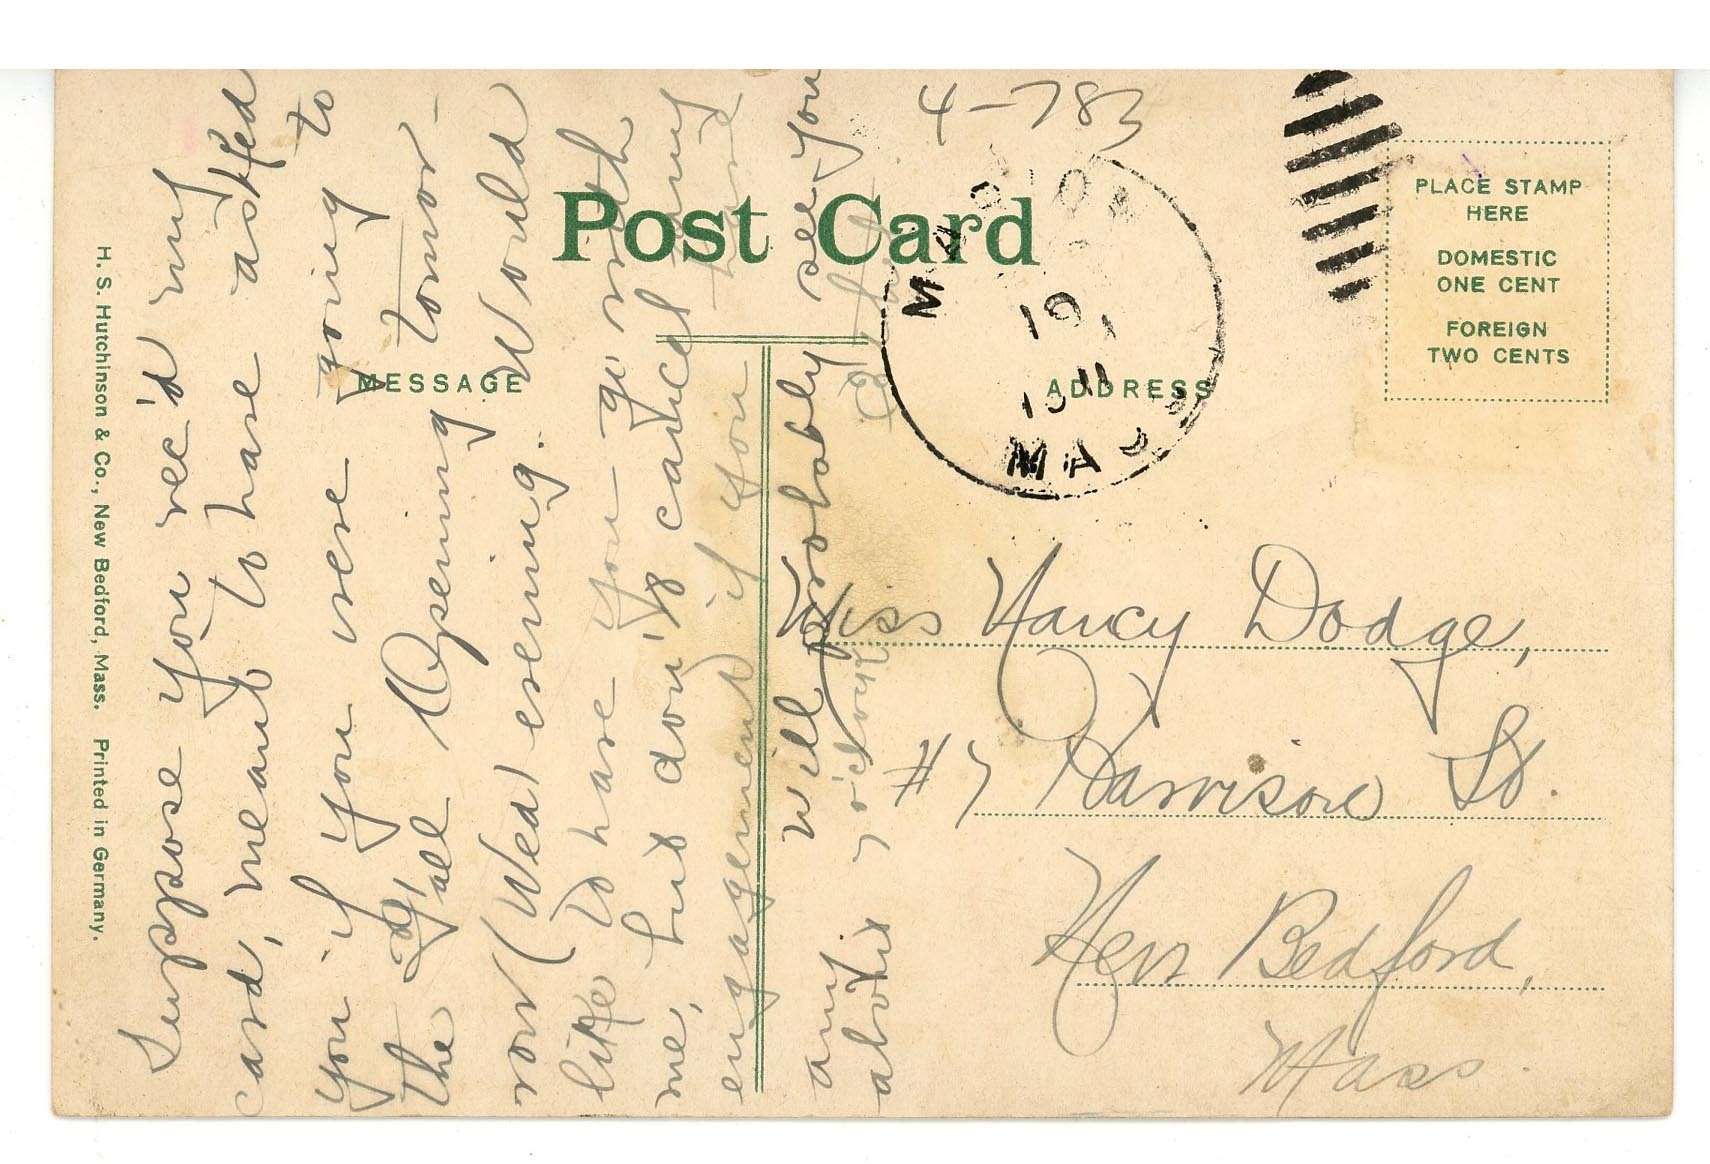 Suppose you rec'd my
card, meant to have asked
you if you were going to
the Fall Opening tomor-
row (Wed) evening. Would
like to have you go with
me, but don't cancel any
engagement if you have
any. Will probably see you
about 7 o'clock
4-783
Post Card
MESSAGE
ADDRESS
PLACE STAMP
HERE
DOMESTIC
ONE CENT
FOREIGN
TWO CENTS
10
MASS
Miss Nancy Dodge,
#7 Harrison St.
New Bedford,
Mass.
H. S. Hutchinson & Co., New Bedford, Mass. Printed in Germany.